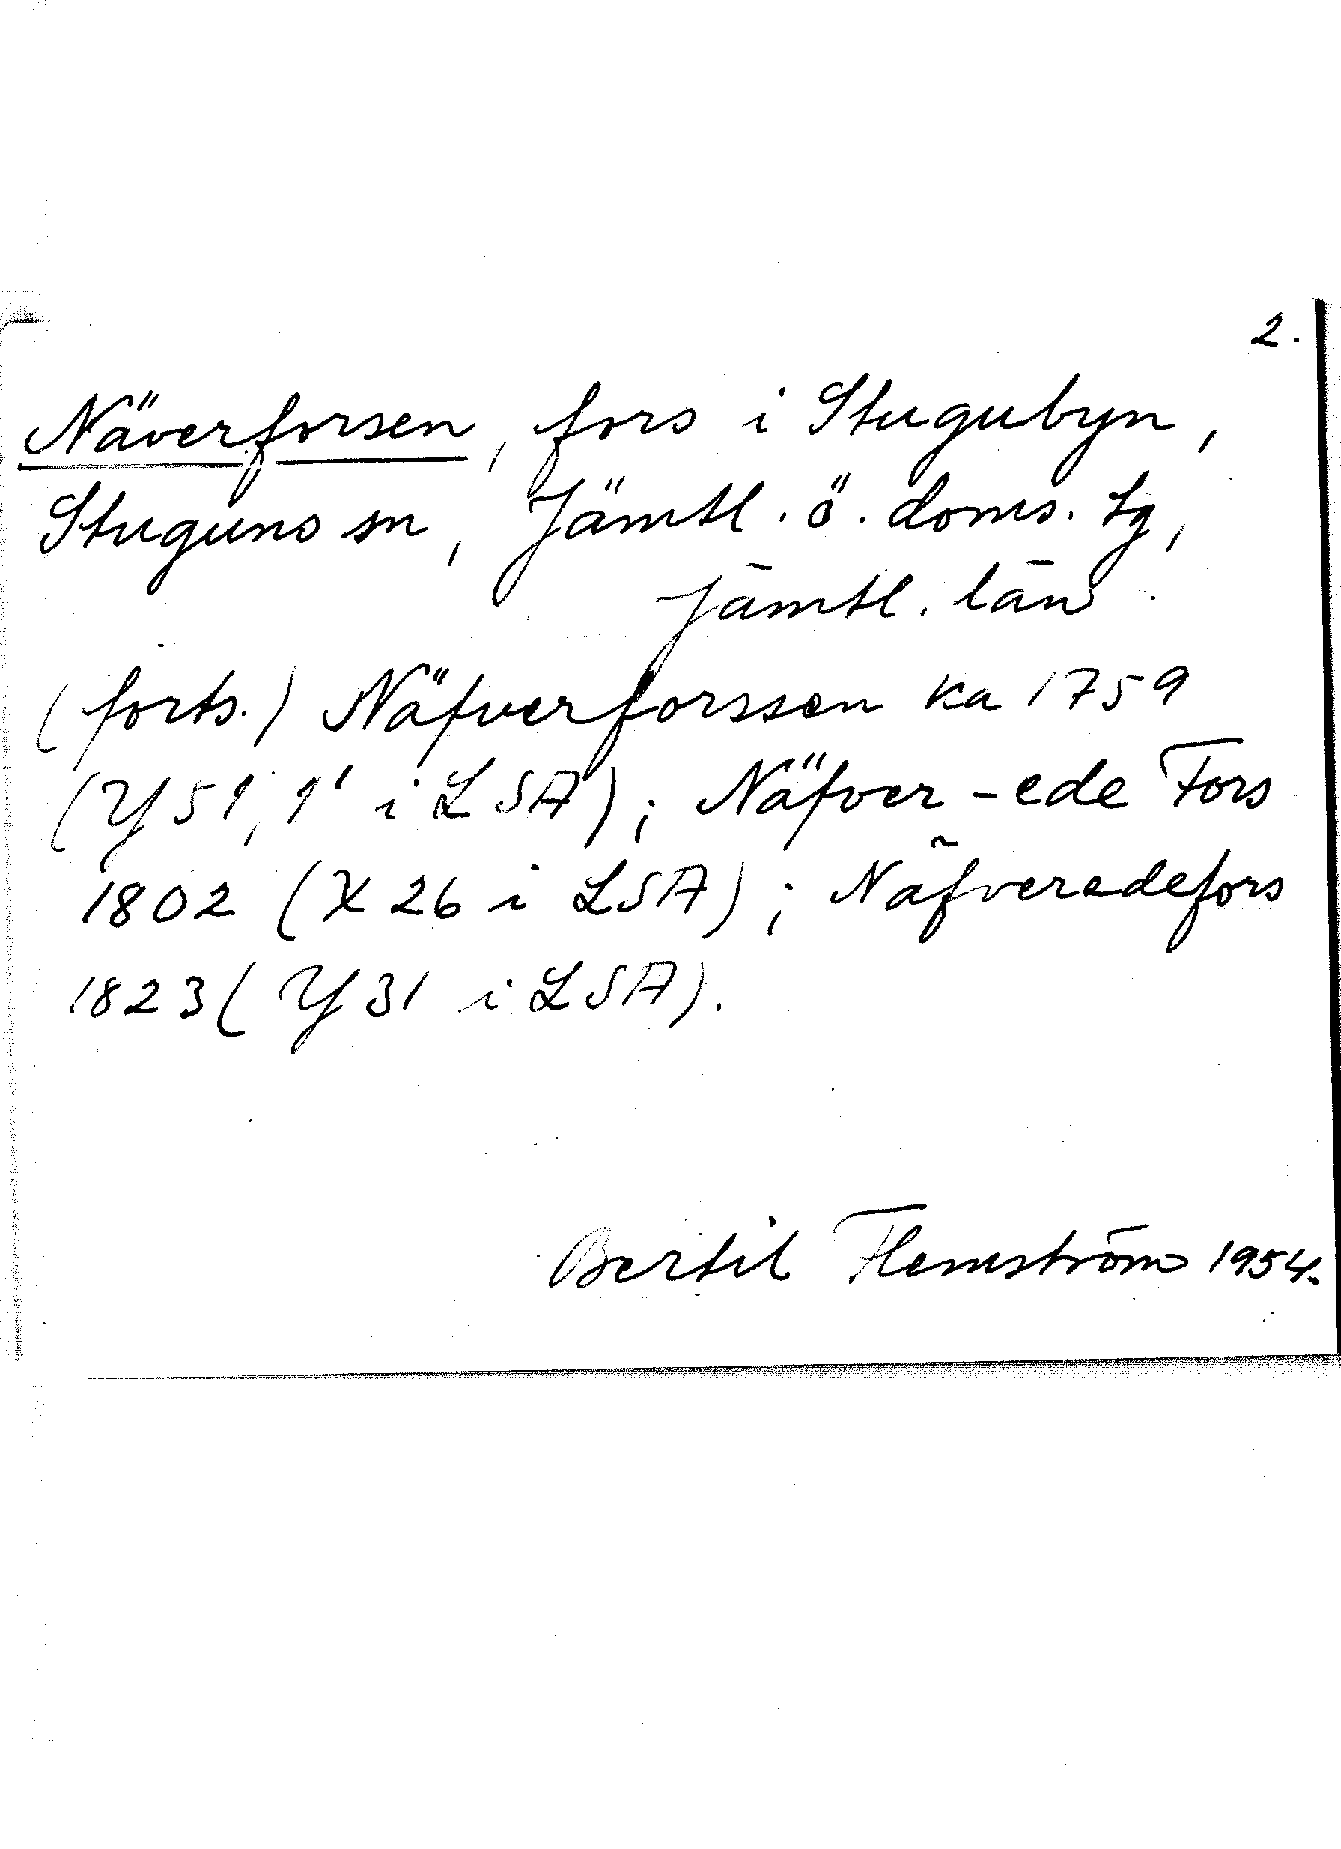 2.
Näverforsen, fors i Stugubyn,
Stuguns sn, Jämtl. ö. doms. tg,
Jämtl. län
(forts.) Näfverforssen ka 1759
(Y 51, 1¹ i LSA); Näfver-ede Fors
1802 (X 26 i LSA); Näfveredefors
1823 (Y 31 i LSA).
Bertil Flemström 1954.